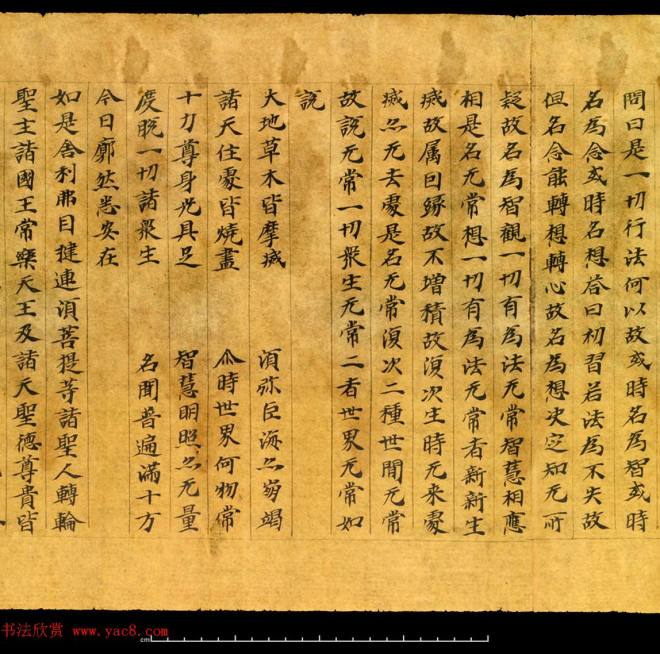 問曰是一切行法何以故或時名為智或時
名為念或時名想荅曰初習若法為不失故
但名念能轉想轉心故名為想决定知无所
疑故名為智觀一切有為法无常智慧相應
相是名无常想一切有為法无常者新新生
滅故属因緣故不增積故復次生時无来處
滅忽无去處是名无常復次二種世間无常
故說无常一切衆生无常二者世界无常如
說
大地草木皆摩滅 須弥巨海忽崩竭
諸天住處皆燒盡 尒時世界何物常
十力尊身光具足 智慧明照忽无量
度脱一切諸衆生 名聞普遍滿十方
今日廓然悉安在
如是舍利弗目揵連須菩提等諸聖人轉輪
聖主諸國王常樂天王及諸天聖德尊貴皆
书法欣赏 www.yac8.com
cm